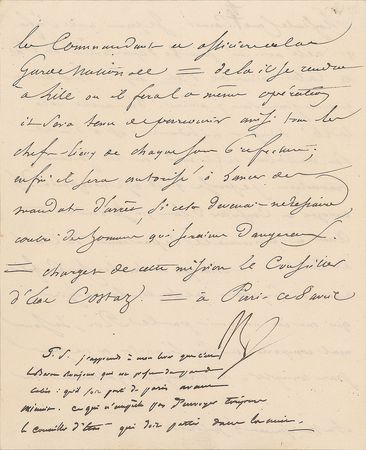 les Commandant et officiers de la
Garde Nationale = de là il se rendra
à Lille ou il fera la même opération
il sera tenu de parcourir aussi tous les
chefs-lieux de chaque sous préfecture;
enfin il sera autorisé à lancer des
mandats d'arrêt, si cela devenait nécessaire,
contre des hommes qui seraient dangereux.
= chargez de cette mission le Conseiller
d'état Costaz. = à Paris ce 8 avril
P.S. j'apprends à mon lever que c'est
le Baron
qu'il soit parti de paris avant
minuit. ce qui n'empêche pas d'envoyer toujours
le conseiller d'état qui doit partir dans la nuit.